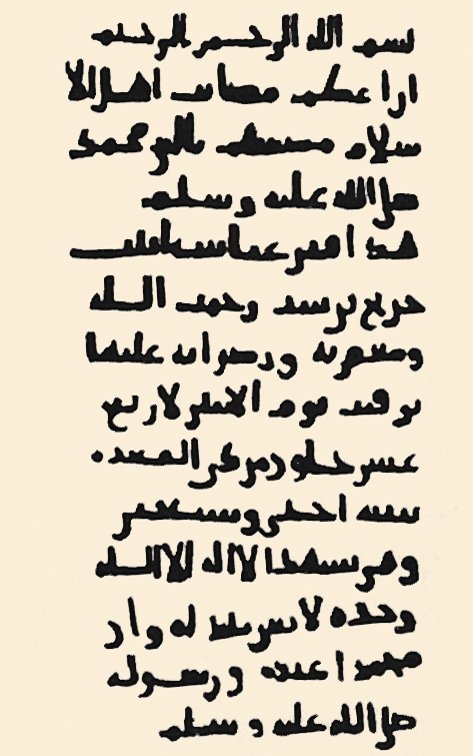 بسم الله الرحمن الرحيم
ان اعظم مصائب اهل الا
سلام مصيبتهم بالنبي محمد
صلى الله عليه وسلم
هذا قبر عباسة ابنت
جريج بن سند رحمت الله
ومغفرته ورضوانه عليها
توفيت يوم الاثنين لاربع
عشر خلون من ذي القعدة
سنة احدى وسبعين
وهي تشهد الا اله الا الله
وحده لا شريك له وان
محمدا عبده ورسوله
صلى الله عليه وسلم